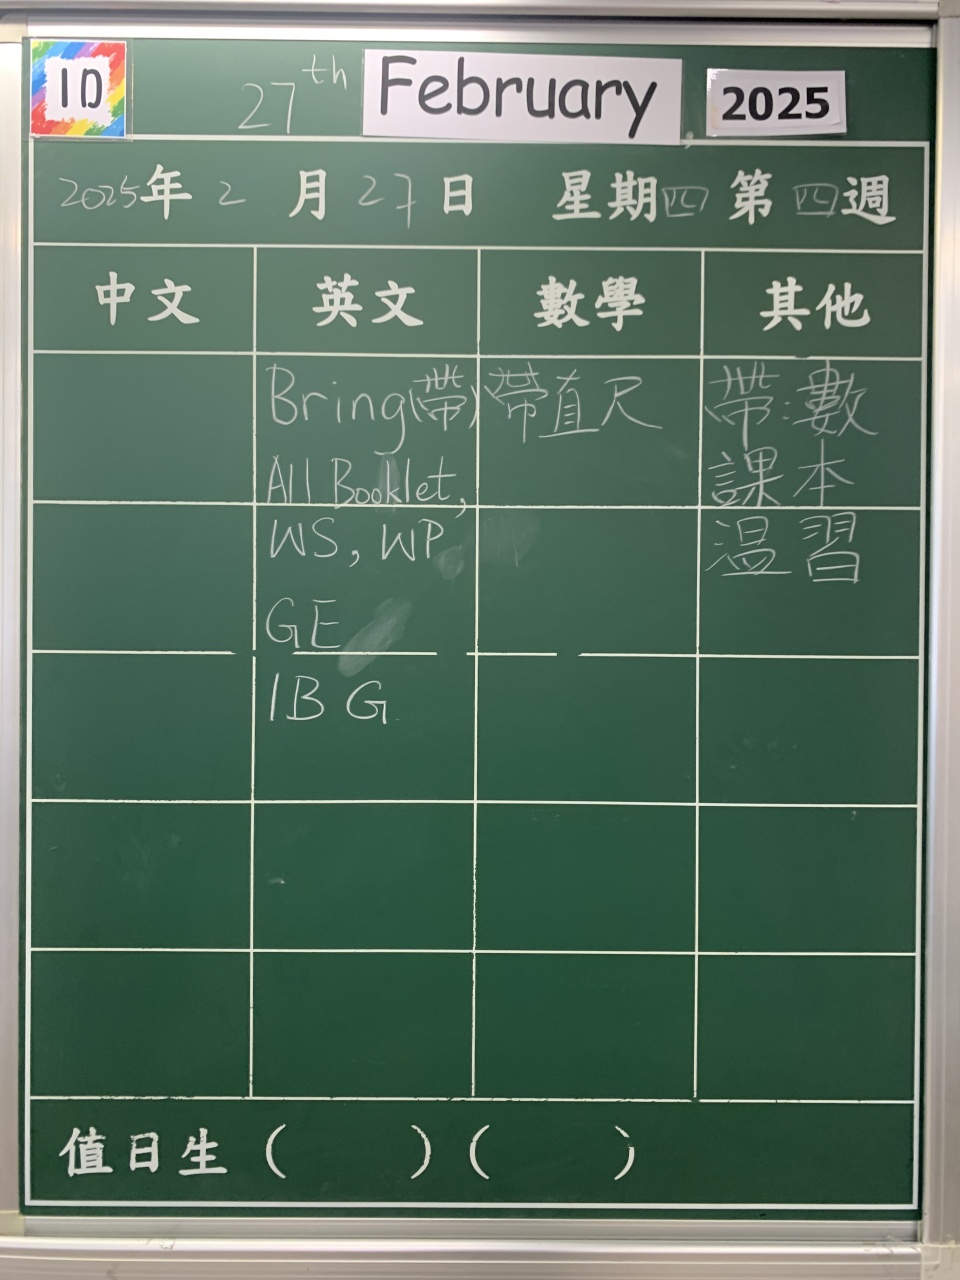 1D
27th February 2025
2025年2月27日 星期四 第四週
中文 英文 數學 其他
Bring(帶) 帶直尺 帶:數
All Booklet, 課本
WS, WP 温習
GE
IBG
值日生 ( ) ( )